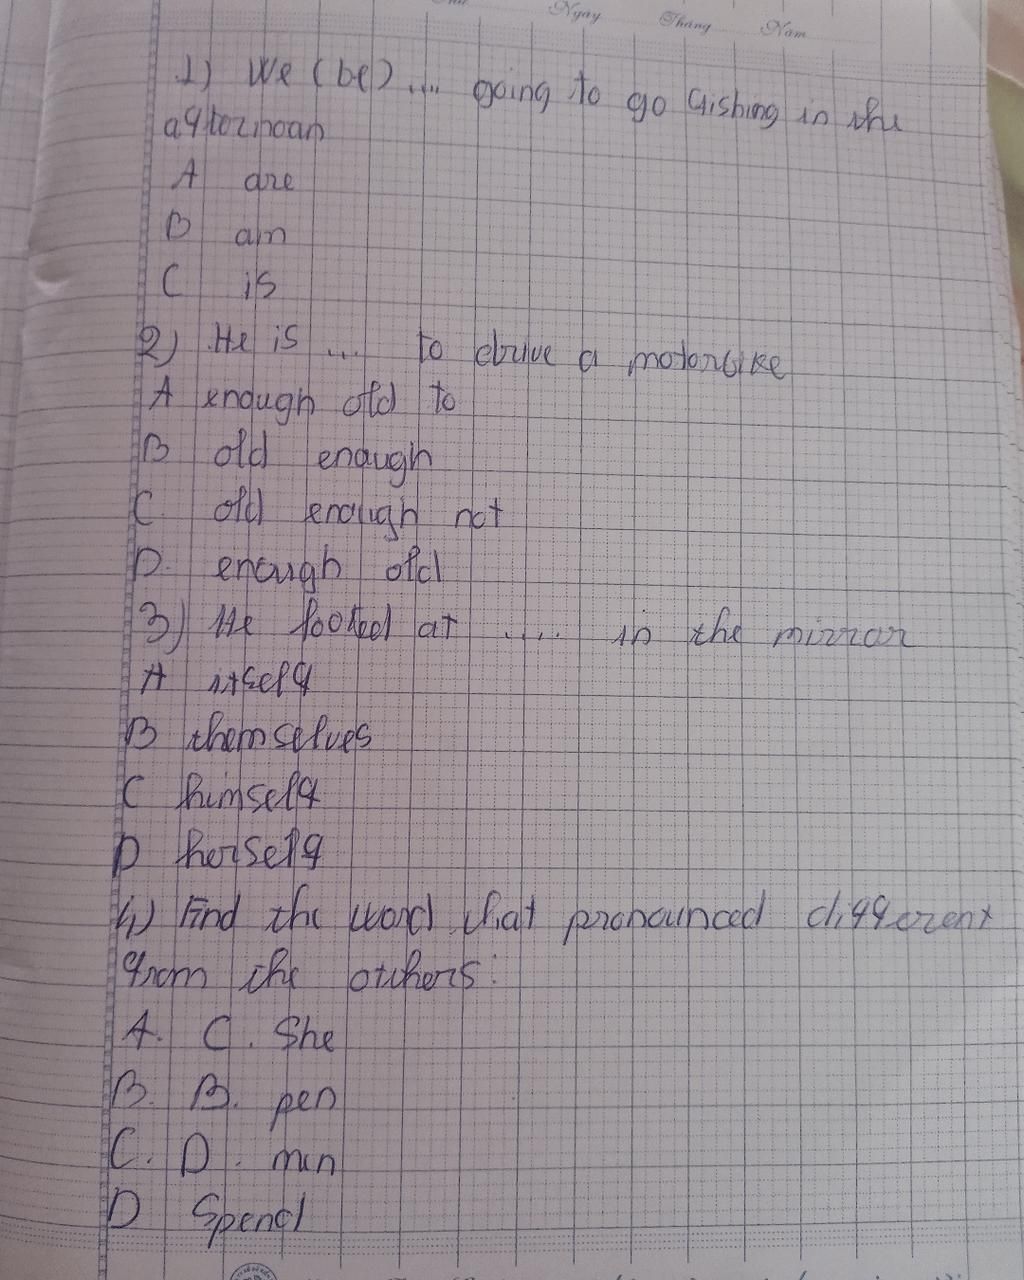 Ngày Tháng Năm
1) We (be) .... going to go fishing in the
afternoon
A are
B am
C is
2) He is ... to drive a motorbike
A enough old to
B old enough
C. old enough not
D. enough old
3) He looked at ..... in the mirror
A itself
B themselves
C himself
D herself
4) Find the word that pronounced different
from the others:
A. C. She
B. B. pen
C. D. men
D Spend